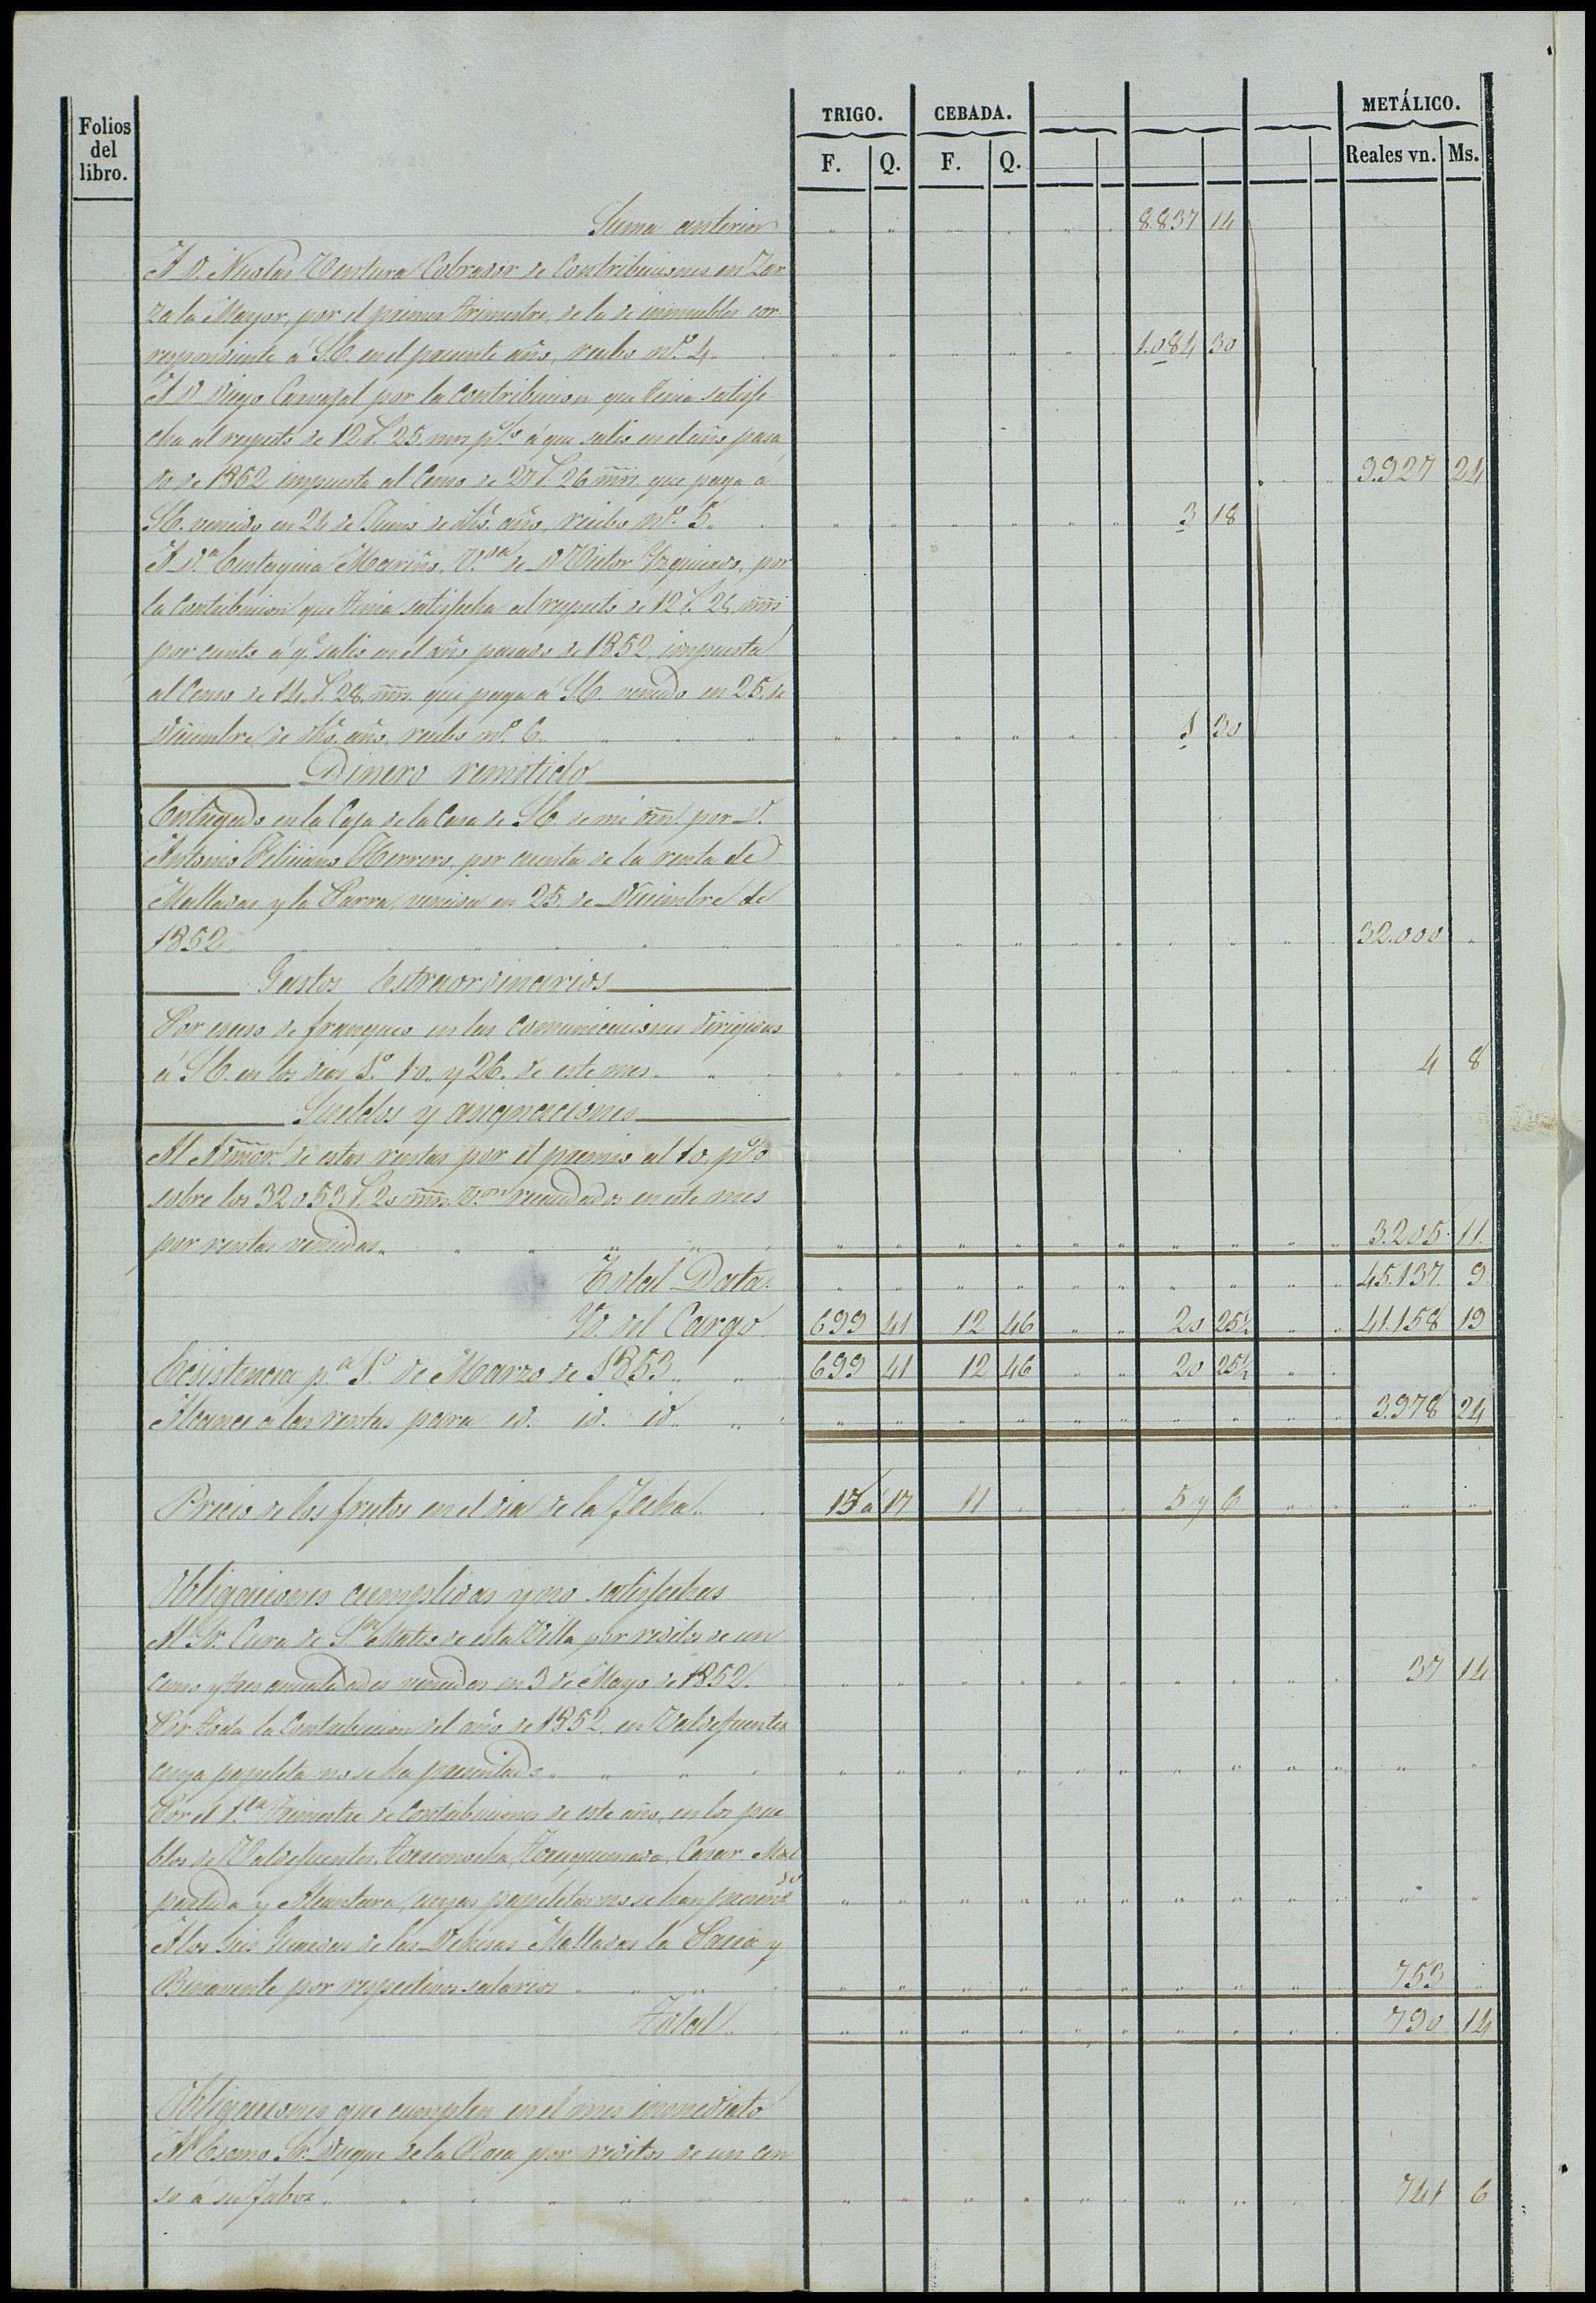 TRIGO. CEBADA. METÁLICO.
Folios del libro. F. Q. F. Q. Reales vn. Ms.
Suma anterior 8.837 14
A D. Nicolas Ventura Cobrador de Contribuciones en Zar
za la Mayor, por el primer trimestre, de la de inmuebles cor-
respondiente á S.E. en el presente año, recibo nº. 4. 1.084 30
A D Diego Carvajal por la contribucion que tenia satisfe-
cha al respecto de 12 r. 25 mrs p% á que salio en el año pasa
do de 1852 impuesta al Censo de 27 r. 26 mrs. que paga á 9.927 24
S.E. vencido en 24 de Junio de dho. año, recibo nº. 5. 3 18
A D.ª Eustaquia Mariño, V.da de D Victor Yzquierdo, por
la contribucion que tenia satisfecha al respecto de 12 r. 26 mrs
por ciento á q.e salio en el año pasado de 1852, impuesta
al Censo de 14 r. 28 mrs. que paga á S.E. vencido en 25. de
Diciembre de dho. año, recibo nº. 6. 1 30
Dinero remitido
Entregado en la Caja de la Casa de S.E. de mi orn. por D.
Antonio Feliciano Herrero, por cuenta de la renta de
Malladas y la Parra vencida en 25 de Diciembre de
1852 32.000
Gastos Estraordinarios
Por esceso de franqueo en las comunicaciones dirigidas
á S.E. en los dias 1º. 10. y 26. de este mes. 4 8
Sueldos y asignaciones
Al Admor. de estas rentas por el premio al 10. p%
sobre los 32053 r. 20 mrs. von recaudados en este mes
por rentas vencidas. 3.205. 11.
Total Data. 45.137. 9
Yd. del Cargo 699 41 12 46 20 25½ 41.158 19
Ecsistencia p.ª 1º de Marzo de 1853. 699 41 12 46 20 25½
Alcance á las rentas para id. id. id. 3.978 24
Precio de los frutos en el dia de la fecha. 15 á 17 11 5 y 6
Obligaciones cumplidas y no satisfechas
Al Sr. Cura de S.n Mateo de esta Villa por reditos de un
censo y tres anualidades vencidas en 3 de Mayo de 1852. 37 14
Por toda la Contribucion del año de 1852. en Valdefuentes
cuya papeleta no se ha presentado.
Por el 1.er Trimestre de Contribuciones de este año, en los pue
blos de Valdefuentes, Torremocha, Torrequemada, Casar, Mal
partida y Alcantara, cuyas papeletas no se han presentdo
A los seis Guardas de las Dehesas Malladas la Parra y
Benavente por respectivos salarios 753
Total 790 14
Obligaciones que cumplen en el mes inmediato
Al Escmo Sr. Duque de la Roca por reditos de un cen
so á su favor. 741 6